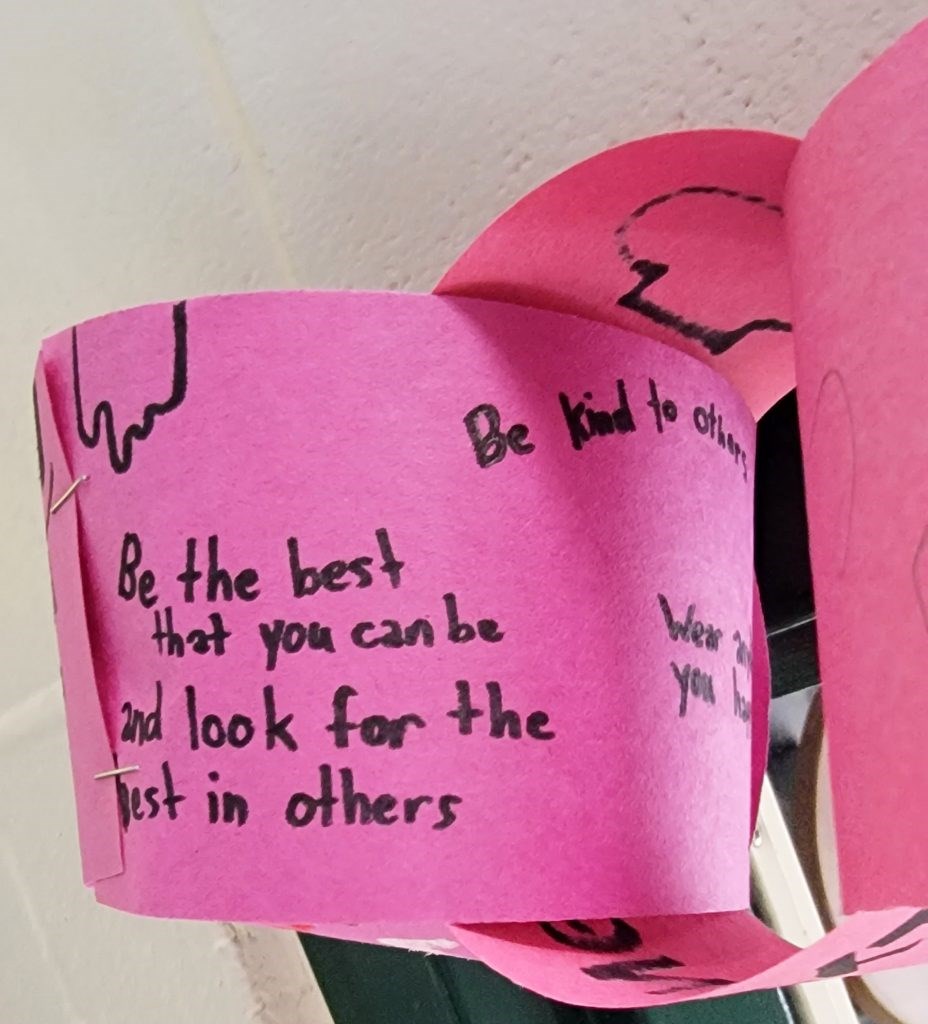 Be kind to others
Be the best
that you can be
and look for the
best in others
Wear
you